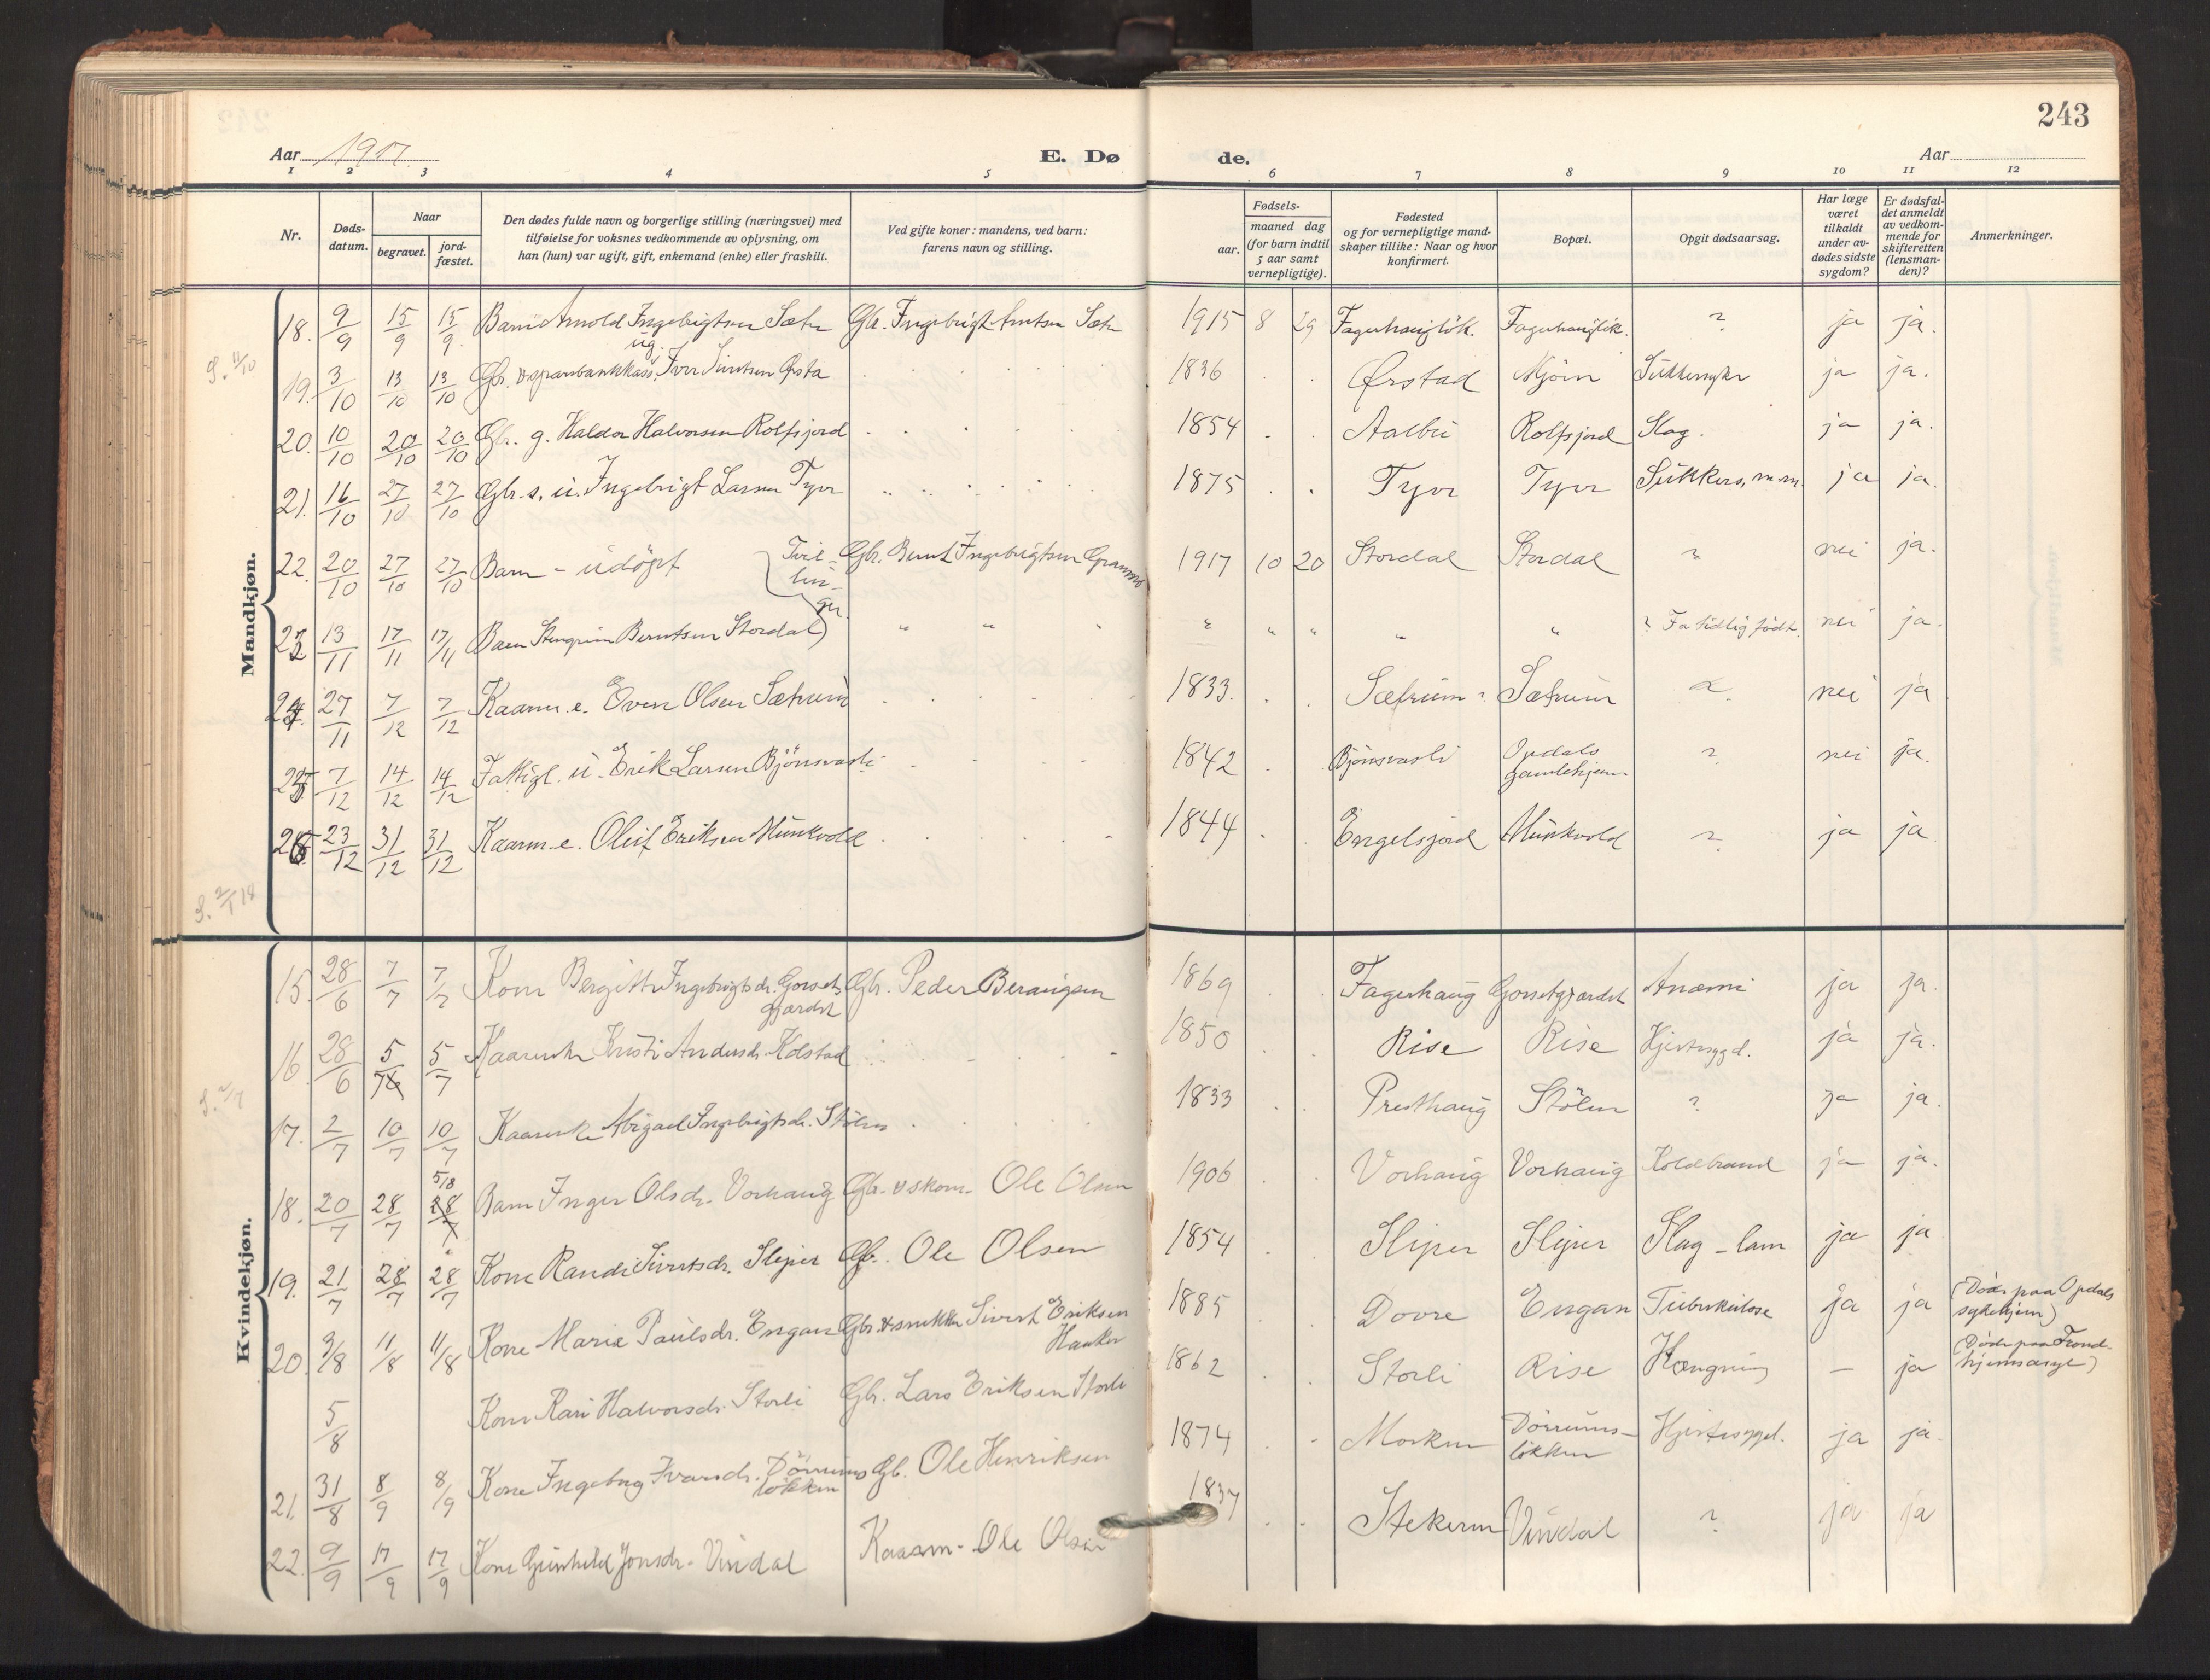 243
Aar 1917
E. Dø
de.
Aar
1 2 3 4 5 6 7 8 9 10 11 12
Nr.
Døds-
datum.
Naar
begravet.
jord-
fæstet.
Den dødes fulde navn og borgerlige stilling (næringsvei) med
tilføielse for voksnes vedkommende av oplysning, om
han (hun) var ugift, gift, enkemand (enke) eller fraskilt.
Ved gifte koner: mandens, ved barn:
farens navn og stilling.
Fødsels-
aar.
maaned dag
(for barn indtil
5 aar samt
vernepligtige).
Fødested
og for vernepligtige mand-
skaper tillike: Naar og hvor
konfirmert.
Bopæl.
Opgit dødsaarsag.
Har læge
været
tilkaldt
under av-
dødes sidste
sygdom?
Er dødsfal-
det anmeldt
av vedkom-
mende for
skifteretten
(lensman-
den)?
Anmerkninger.
Mandkjøn.
18. 9/9 15/9 15/9 Barn Arnold Ingebrigtsen Sæter Gbr. Ingebrigt Arntsen Sæter 1915 8 29 Fagerhaugløk. Fagerhaugløk. ? ja ja.
S. 11/10
19. 3/10 13/10 13/10 Gbr. & sparebankkass. ug. Iver Sivertsen Ørsta 1836 Ørstad Mjøen Sukkersyke ja ja.
20. 10/10 20/10 20/10 Gbr. g. Haldor Halvorsen Rolfsjord 1854 Aalbu Rolfsjord Slag. ja ja.
21. 16/10 27/10 27/10 Gbr. s. u. Ingebrigt Larsen Tyvr 1875 Tyvr Tyvr Sukkers. m.m. ja ja.
22. 20/10 27/10 27/10 Barn - udøpt Tvil- Gbr. Bernt Ingebrigtsen 1917 10 20 Stordal Stordal ? nei ja.
lin-
ger
23 13/11 17/11 17/11 Barn Stengrim Berntsen Stordal) " " " " " " " ? For tidlig født. nei ja.
24. 27/11 7/12 7/12 Kaarm. e. Even Olsen Sætrum 1833. Sætrum ? Sætrum nei ja
25. 7/12 14/12 14/12 Fattigl. u. Erik Larsen Bjönsvasli 1842 Bjönsvasli Opdals ? nei ja.
gamlehjem
26. 23/12 31/12 31/12 Kaarm. e. Oluf Eriksen Munkvold 1844 Engelsjord Munkvold ? ja ja
S. 2/1 18
Kvindekjøn.
15. 28/6 7/7 7/7 Kone Bergitte Ingebrigtsdr. Gorset- Gbr. Peder Berauigsen 1869 Fagerhaug Gorsetgjærdet Anæmi ja ja.
gjærdet
16. 28/6 5/7 5/7 Kaarenke Kristi Andersdr. Kolstad 1850 Rise Rise Hjertesygd. ja ja.
S. 2/7
17. 2/7 10/7 10/7 Kaarenke Abigael Ingebrigtsdr. Stölen 1833 Presthaug Stölen ? ja ja.
5/8
18. 20/7 28/7 28/7 Barn Inger Olsdr. Vorhaug Gbr. & skom. Ole Olsen 1906 Vorhaug Vorhaug Koldbrand ja ja.
19. 21/7 28/7 28/7 Kone Randi Sivertsdr. Sliper Gbr. Ole Olsen 1854 Sliper Sliper Slag - lam ja ja
20. 3/8 11/8 11/8 Kone Marie Paulsdr. Engan Gbr. & snikker Sivert Eriksen 1885 Dovre Engan Tuberkulose ja ja (Døde paa Opdals
Hauker
sykehjem)
5/8 Kone Kari Halvorsdr. Storli Gbr. Lars Eriksen Storli 1862 Storli Rise Hængning — ja (Døde paa Trond-
hjemsasyl)
21. 31/8 8/9 8/9 Kone Ingebrg Ivarsdr. Dörrums Gb. Ole Henriksen 1874 Morken Dörrums- Hjertesygd. ja ja
lökken
lökken
22. 9/9 17/9 17/9 Kone Gunhild Jonsdr. Vindal Kaarm. Ole Olsen 1837 Stekerm Vindal ? ja ja